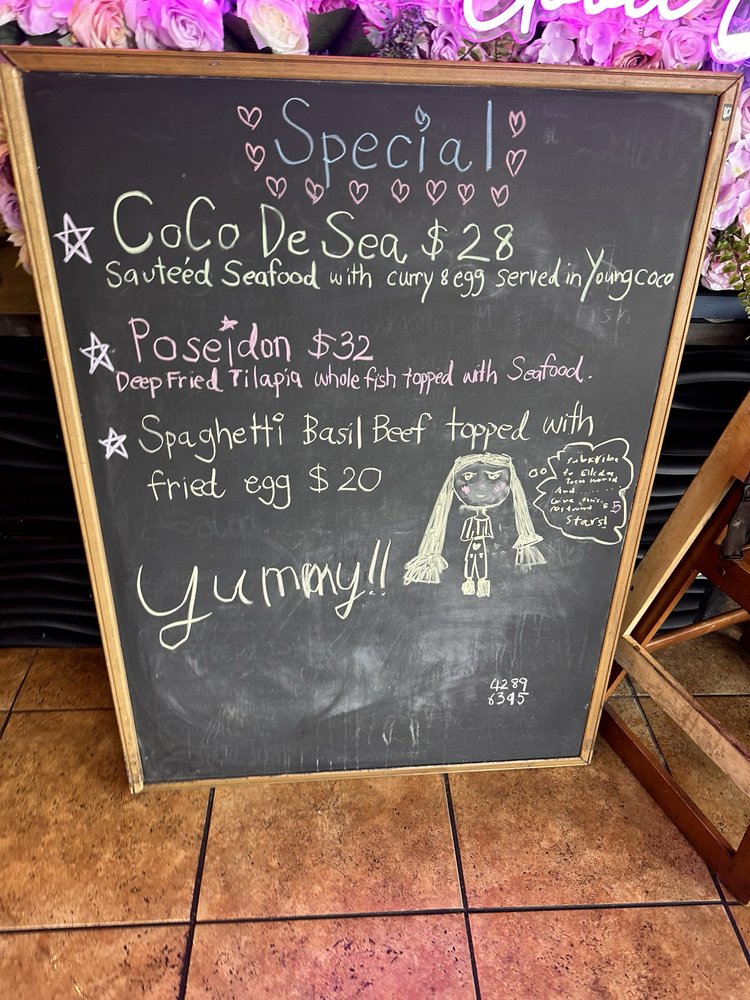 Good
Special
CoCo De Sea $28
Sauteéd Seafood with curry & egg served in Young coco
Poseidon $32
Deep Fried Tilapia whole fish topped with Seafood.
Spaghetti Basil Beef topped with
fried egg $20
Yummy!!
Subscribe
to
And......
Give this
5
Stars!
4289
6345